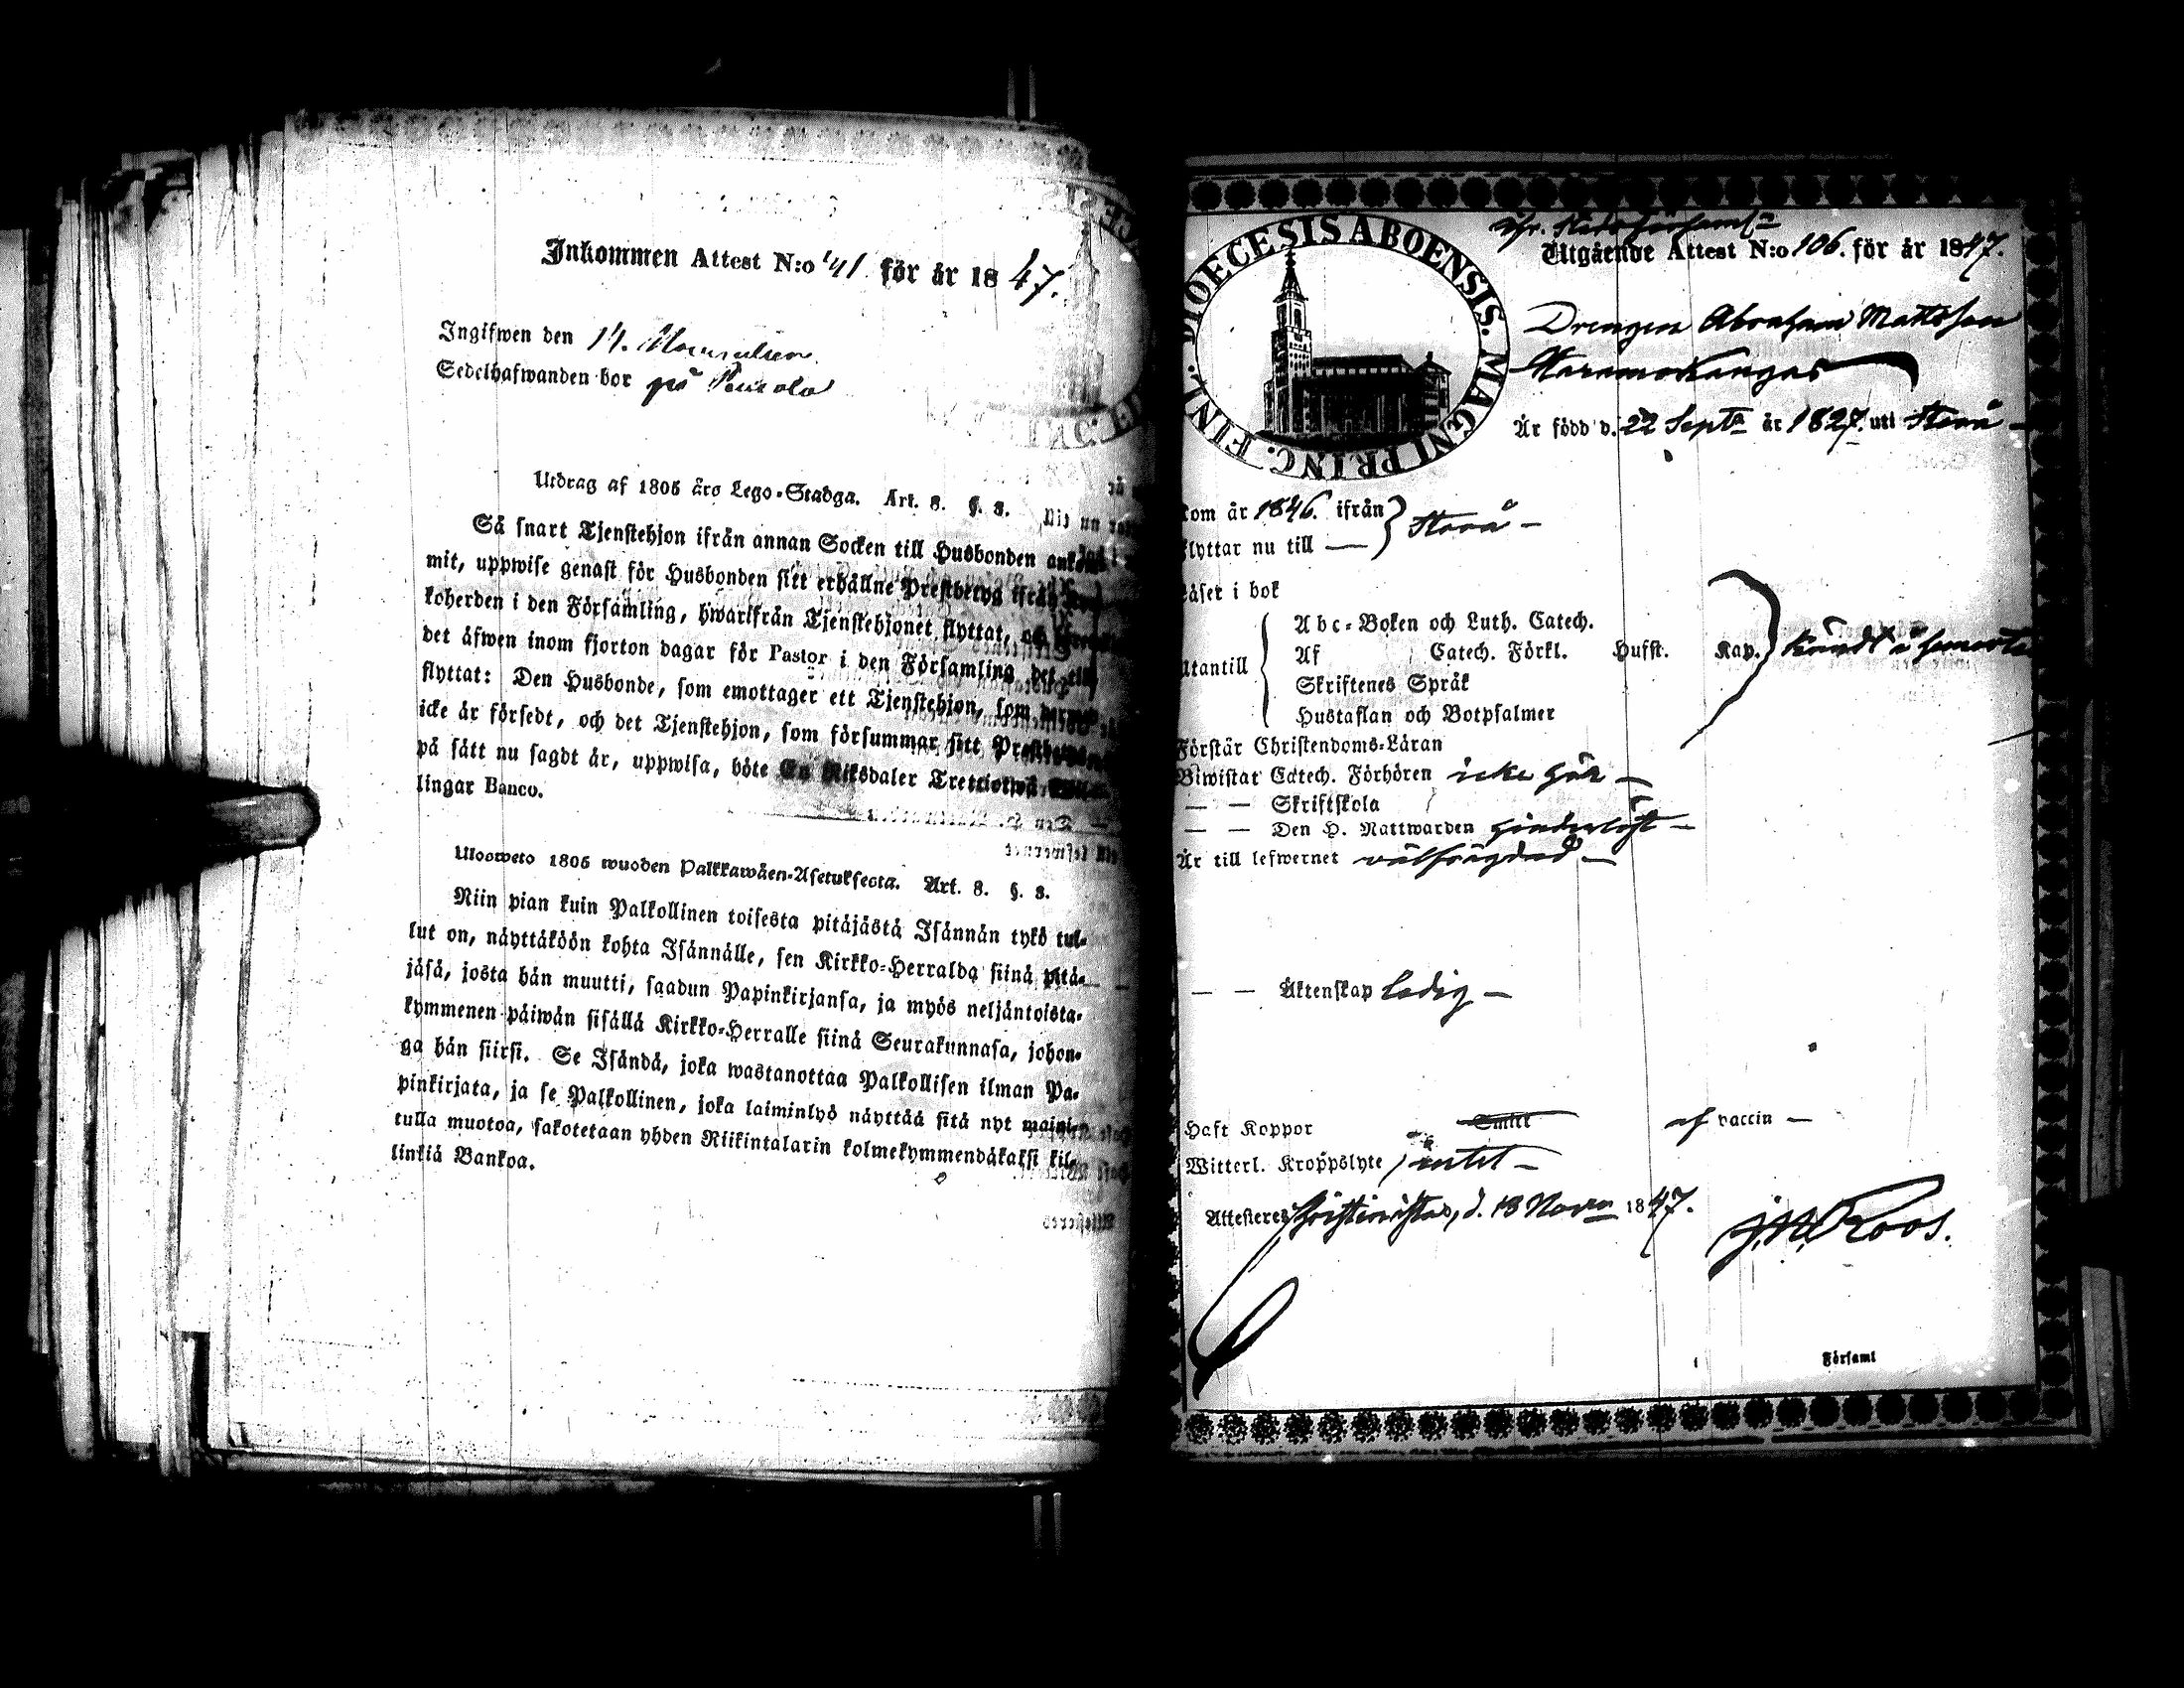 Inkommen Attest N:o 41 för år 1847.
Ingifwen den 14.
Sedelhafwanden bor på
Utdrag af 1805 års Lego-Stadga. Art. 8. §. 3.
Så snart Tjenstehjon ifrån annan Socken till Husbonden ankom-
mit, uppwise genast för Husbonden sitt erhållne Prestbetyg ifrån
koherden i den Församling, hwarifrån Tjenstehjonet flyttat, och
det äfwen inom fjorton dagar för Pastor i den Församling det till
flyttat: Den Husbonde, som emottager ett Tjenstehjon, som dermed
icke är försedt, och det Tjenstehjon, som försummar sitt
på sätt nu sagdt är, uppwisa, böte En Riksdaler Trettiotwå
lingar Banco.
Ulosweto 1805 wuoden Palkkawäen-Asetuksesta. Art. 8. §. 3.
Niin pian kuin Palkollinen toisesta pitäjästä Isännän tykö tul-
lut on, näyttäköön kohta Isännälle, sen Kirkko-Herralda siinä pitä-
jäsä, josta hän muutti, saadun Papinkirjansa, ja myös neljäntoista-
kymmenen päiwän sisällä Kirkko-Herralle siinä Seurakunnasa, johon-
ga hän siirsi. Se Isändä, joka wastanottaa Palkollisen ilman Pa-
pinkirjata, ja se Palkollinen, joka laiminlyö näyttää sitä nyt mainit-
tulla muotoa, sakotetaan yhden Riikintalarin kolmekymmendäkaksi kil-
linkiä Bankoa.
DIOECESIS ABOENSIS. MAGNI PRINC. FINL.
Utgående Attest N:o 106. för år 1847.
Drengen Abraham Mattsson
Är född d. 22 Sept. år 1827. uti Storå
kom år 1846. ifrån } Storå
flyttar nu till
Läser i bok
Abc-Boken och Luth. Catech.
Utantill Af Catech. Förkl. Hufst. Kap.
Skriftenes Språk
Hustaflan och Botpsalmer
Förstår Christendoms-Läran
Biwistat Catech. Förhören icke här
— — Skriftskola
— — Den H. Nattwarden
Är till lefwernet välfrägdad
— — Äktenskap ledig
Haft Koppor af vaccin
Witterl. Kroppslyte intet
Attesteres Christinestad, d. 13 Novr 1847. J. M. Roos.
Församl